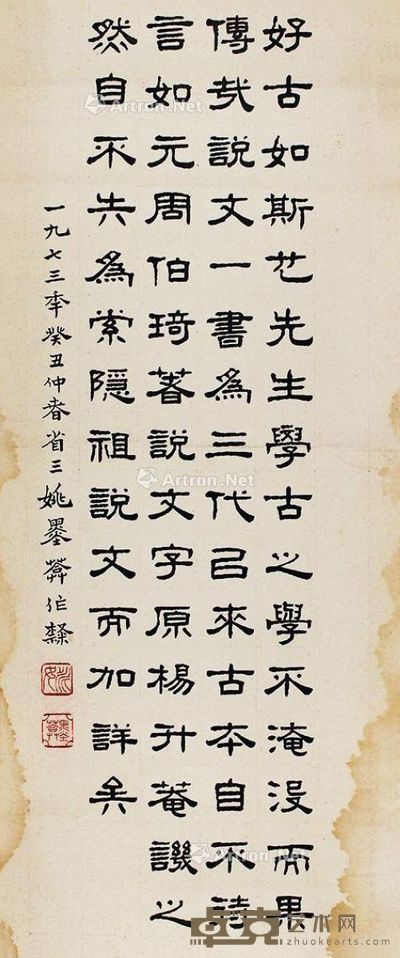 好古如斯艺先生學古之學不淹没而果
傳哉說文一書為三代已來古本自不待
言如元周伯琦著說文字原楊升菴譏之
然自不失為索隱祖說文而加詳矣
一九七三季癸丑仲春省三姚墨莽作隸
Artron.Net
Artron.Net
Artron.Net
Artron.Net
卓克艺术网
zhuokearts.com